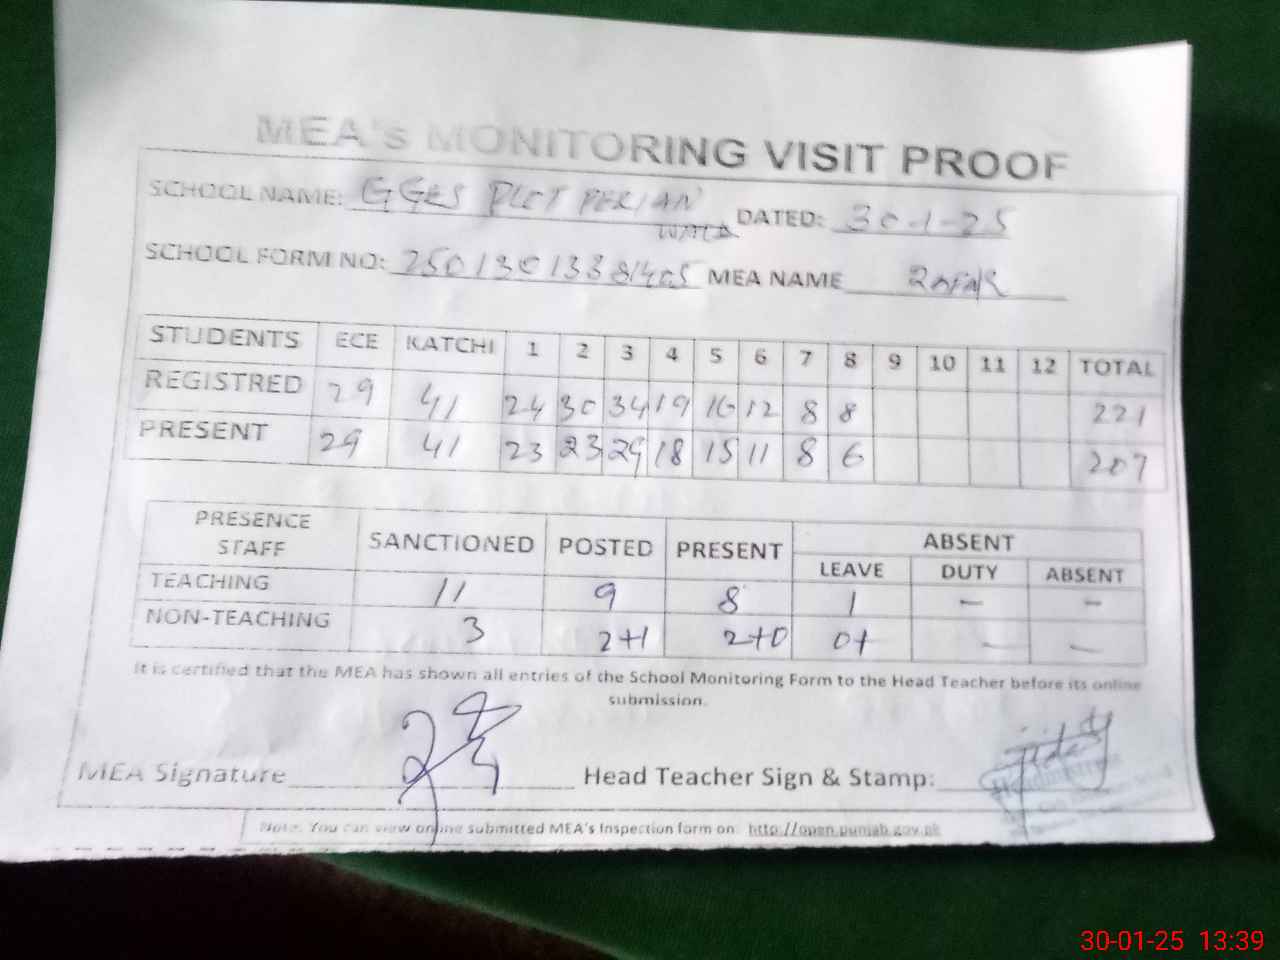 MEA's MONITORING VISIT PROOF
SCHOOL NAME: GGES PLOT PERIAN WALA DATED: 30-1-25
SCHOOL FORM NO: MEA NAME
STUDENTS ECE KATCHI 1 2 3 4 5 6 7 8 9 10 11 12 TOTAL
REGISTRED 29 41 24 30 34 19 16 12 8 8 221
PRESENT 29 41 23 23 29 18 15 11 8 6 207
PRESENCE STAFF SANCTIONED POSTED PRESENT ABSENT
LEAVE DUTY ABSENT
TEACHING 11 9 8 1 - -
NON-TEACHING 3 2+1 2+0 0+ - -
It is certified that the MEA has shown all entries of the School Monitoring Form to the Head Teacher before its online
submission.
MEA Signature Head Teacher Sign & Stamp:
Note: You can view online submitted MEA's Inspection form on: http://open.punjab.gov.pk
30-01-25 13:39